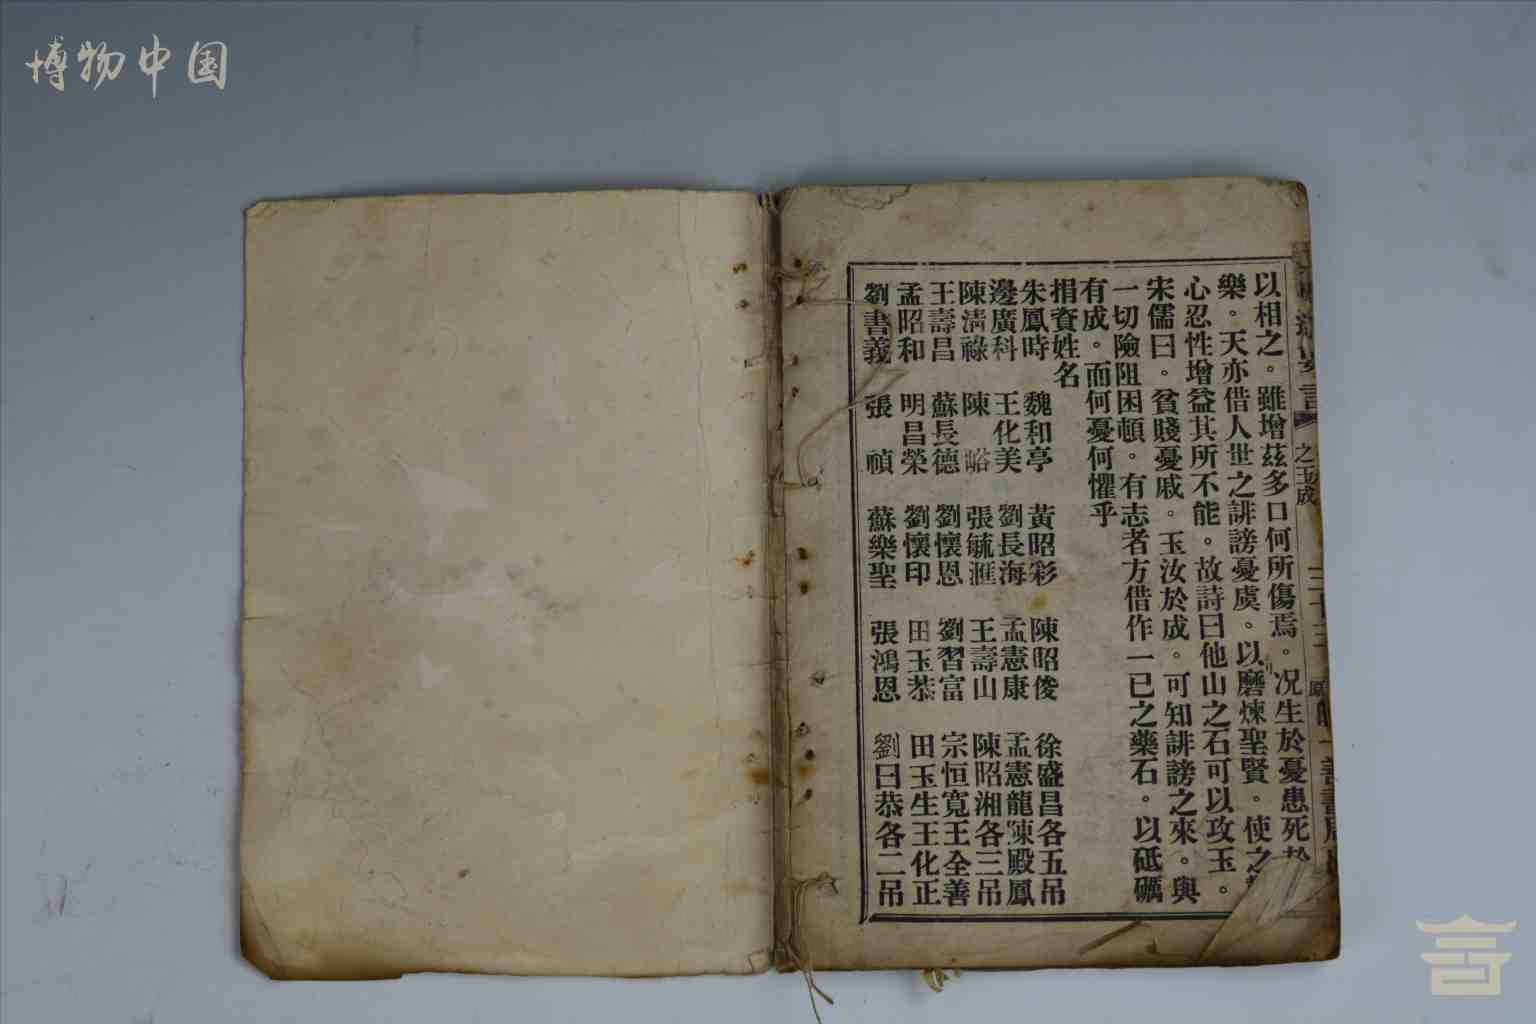 博物中国
以相之。雖增茲多口何所傷焉。况生於憂患死於
樂。天亦借人世之誹謗憂虞。以磨煉聖賢。使之
心忍性增益其所不能。故詩曰他山之石可以攻玉。
宋儒曰。貧賤憂戚。玉汝於成。可知誹謗之來。與
一切險阻困頓。有志者方借作一已之藥石。以砥礪
有成。而何憂何懼乎
捐資姓名
朱鳳時 魏和亭 黃昭彩 陳昭俊 徐盛昌各五吊
邊廣科 王化美 劉長海 孟憲康 孟憲龍 陳殿鳳
陳淸祿 陳 峪 張毓滙 王壽山 陳昭湘各三吊
王壽昌 蘇長德 劉懷恩 劉習富 宗恒寬 王全善
孟昭和 明昌榮 劉懷印 田玉恭 田玉生 王化正
劉書義 張 禎 蘇樂聖 張鴻恩 劉曰恭各二吊